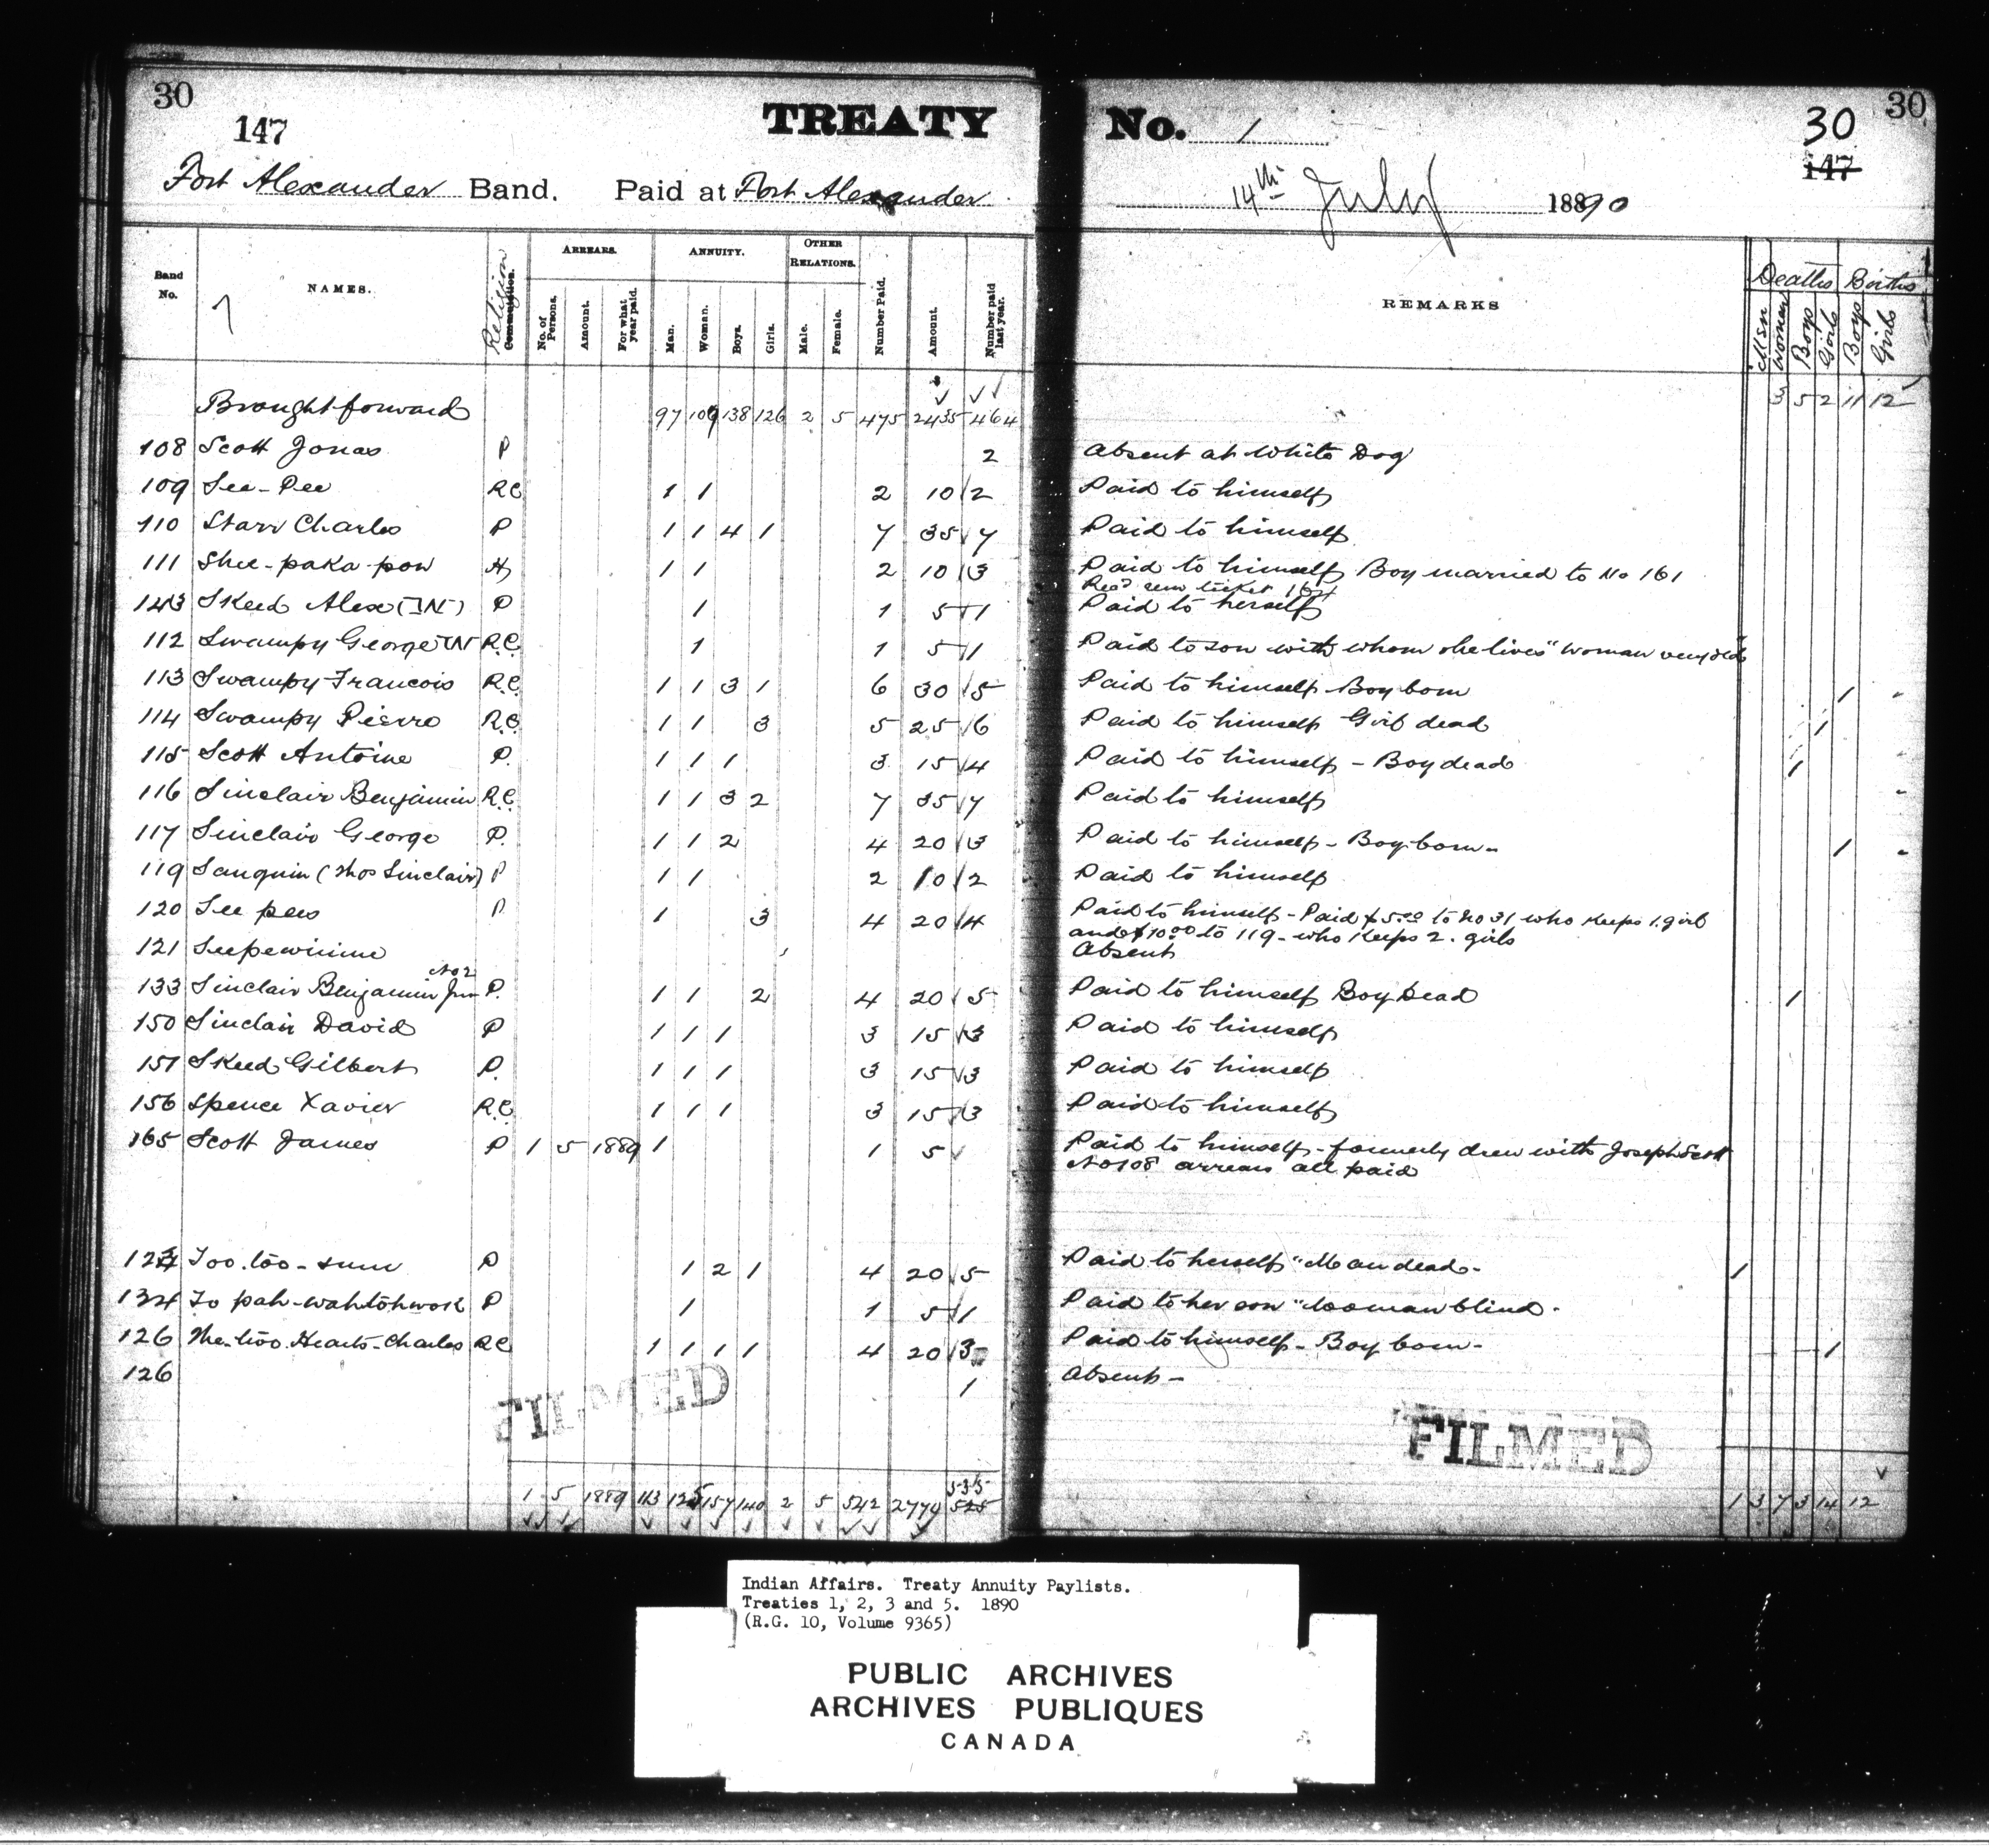 30
147
TREATY No. 1
30
30
147
Fort Alexander Band. Paid at Fort Alexander 14th July 18890
Band No. NAMES. Religion ARREARS. No. of Persons. Amount. For what year paid. ANNUITY. Man. Woman. Boys. Girls. OTHER RELATIONS. Male. Female. Number Paid. Amount. Number paid last year. REMARKS Deaths Men Women Boys Girls Births Boys Girls
Brought forward 97 109 138 126 2 5 475 2435 464 3 5 2 11 12
108 Scott Jonas P 2 Absent at White Dog
109 See-Pee RC 1 1 2 10 2 Paid to himself
110 Starr Charles P 1 1 4 1 7 35 7 Paid to himself
111 Shee-paka-pow H 1 1 2 10 3 Paid to himself Boy married to No 161
143 Skeed Alex P 1 1 5 1 Paid to herself
112 Swampy George R.C. 1 1 5 1 Paid to son with whom she lives "Woman very old
113 Swampy Francois R.C. 1 1 3 1 6 30 5 Paid to himself Boy born 1
114 Swampy Pierre R.C. 1 1 3 5 25 6 Paid to himself Girl dead 1
115 Scott Antoine P. 1 1 1 3 15 4 Paid to himself - Boy dead 1
116 Sinclair Benjamin R.C. 1 1 3 2 7 35 7 Paid to himself
117 Sinclair George P. 1 1 2 4 20 3 Paid to himself - Boy born - 1
119 Sanquin (Thos Sinclair) P 1 1 2 10 2 Paid to himself
120 See pees P 1 3 4 20 4 Paid to himself - Paid $5.00 to No 31 who keeps 1 girl
and $10.00 to 119 - who keeps 2. girls
121 Seepewinine Absent
133 Sinclair Benjamin Jun No 2 P. 1 1 2 4 20 5 Paid to himself Boy Dead 1
150 Sinclair David P 1 1 1 3 15 3 Paid to himself
151 Skeed Gilbert P. 1 1 1 3 15 3 Paid to himself
156 Spence Xavier R.C. 1 1 1 3 15 3 Paid to himself
165 Scott James P 1 5 1889 1 1 5 Paid to himself - formerly drew with Joseph Scott
No 108 arrears all paid
Too-too-sum P 1 2 1 4 20 5 Paid to herself "Man dead - 1
134 To pah-wahtohwok P 1 1 5 1 Paid to her son "Woman blind -
126 The-two Hearts-Charles RC 1 1 1 1 4 20 3 Paid to himself - Boy born - 1
126 1 Absent -
FILMED
FILMED
535
1 5 1889 113 125 157 140 2 5 542 2774 525 1 3 7 3 14 12
Indian Affairs. Treaty Annuity Paylists.
Treaties 1, 2, 3 and 5. 1890
(R.G. 10, Volume 9365)
PUBLIC ARCHIVES
ARCHIVES PUBLIQUES
CANADA